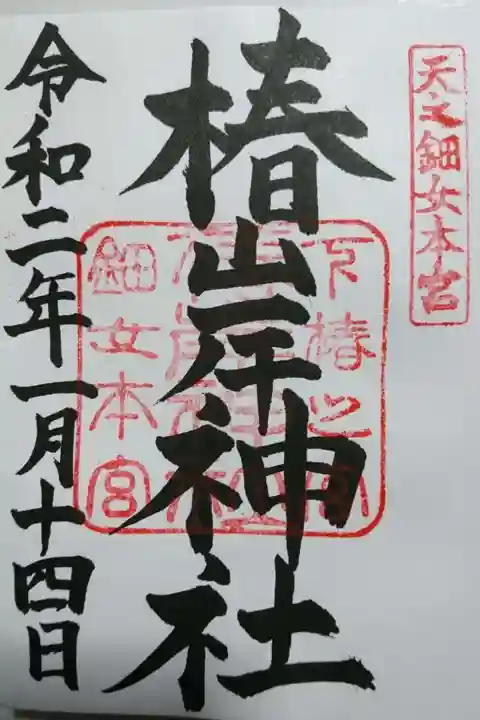 天之鈿女本宮
椿岸神社
下椿之宮
鈿女本宮
令和二年一月十四日